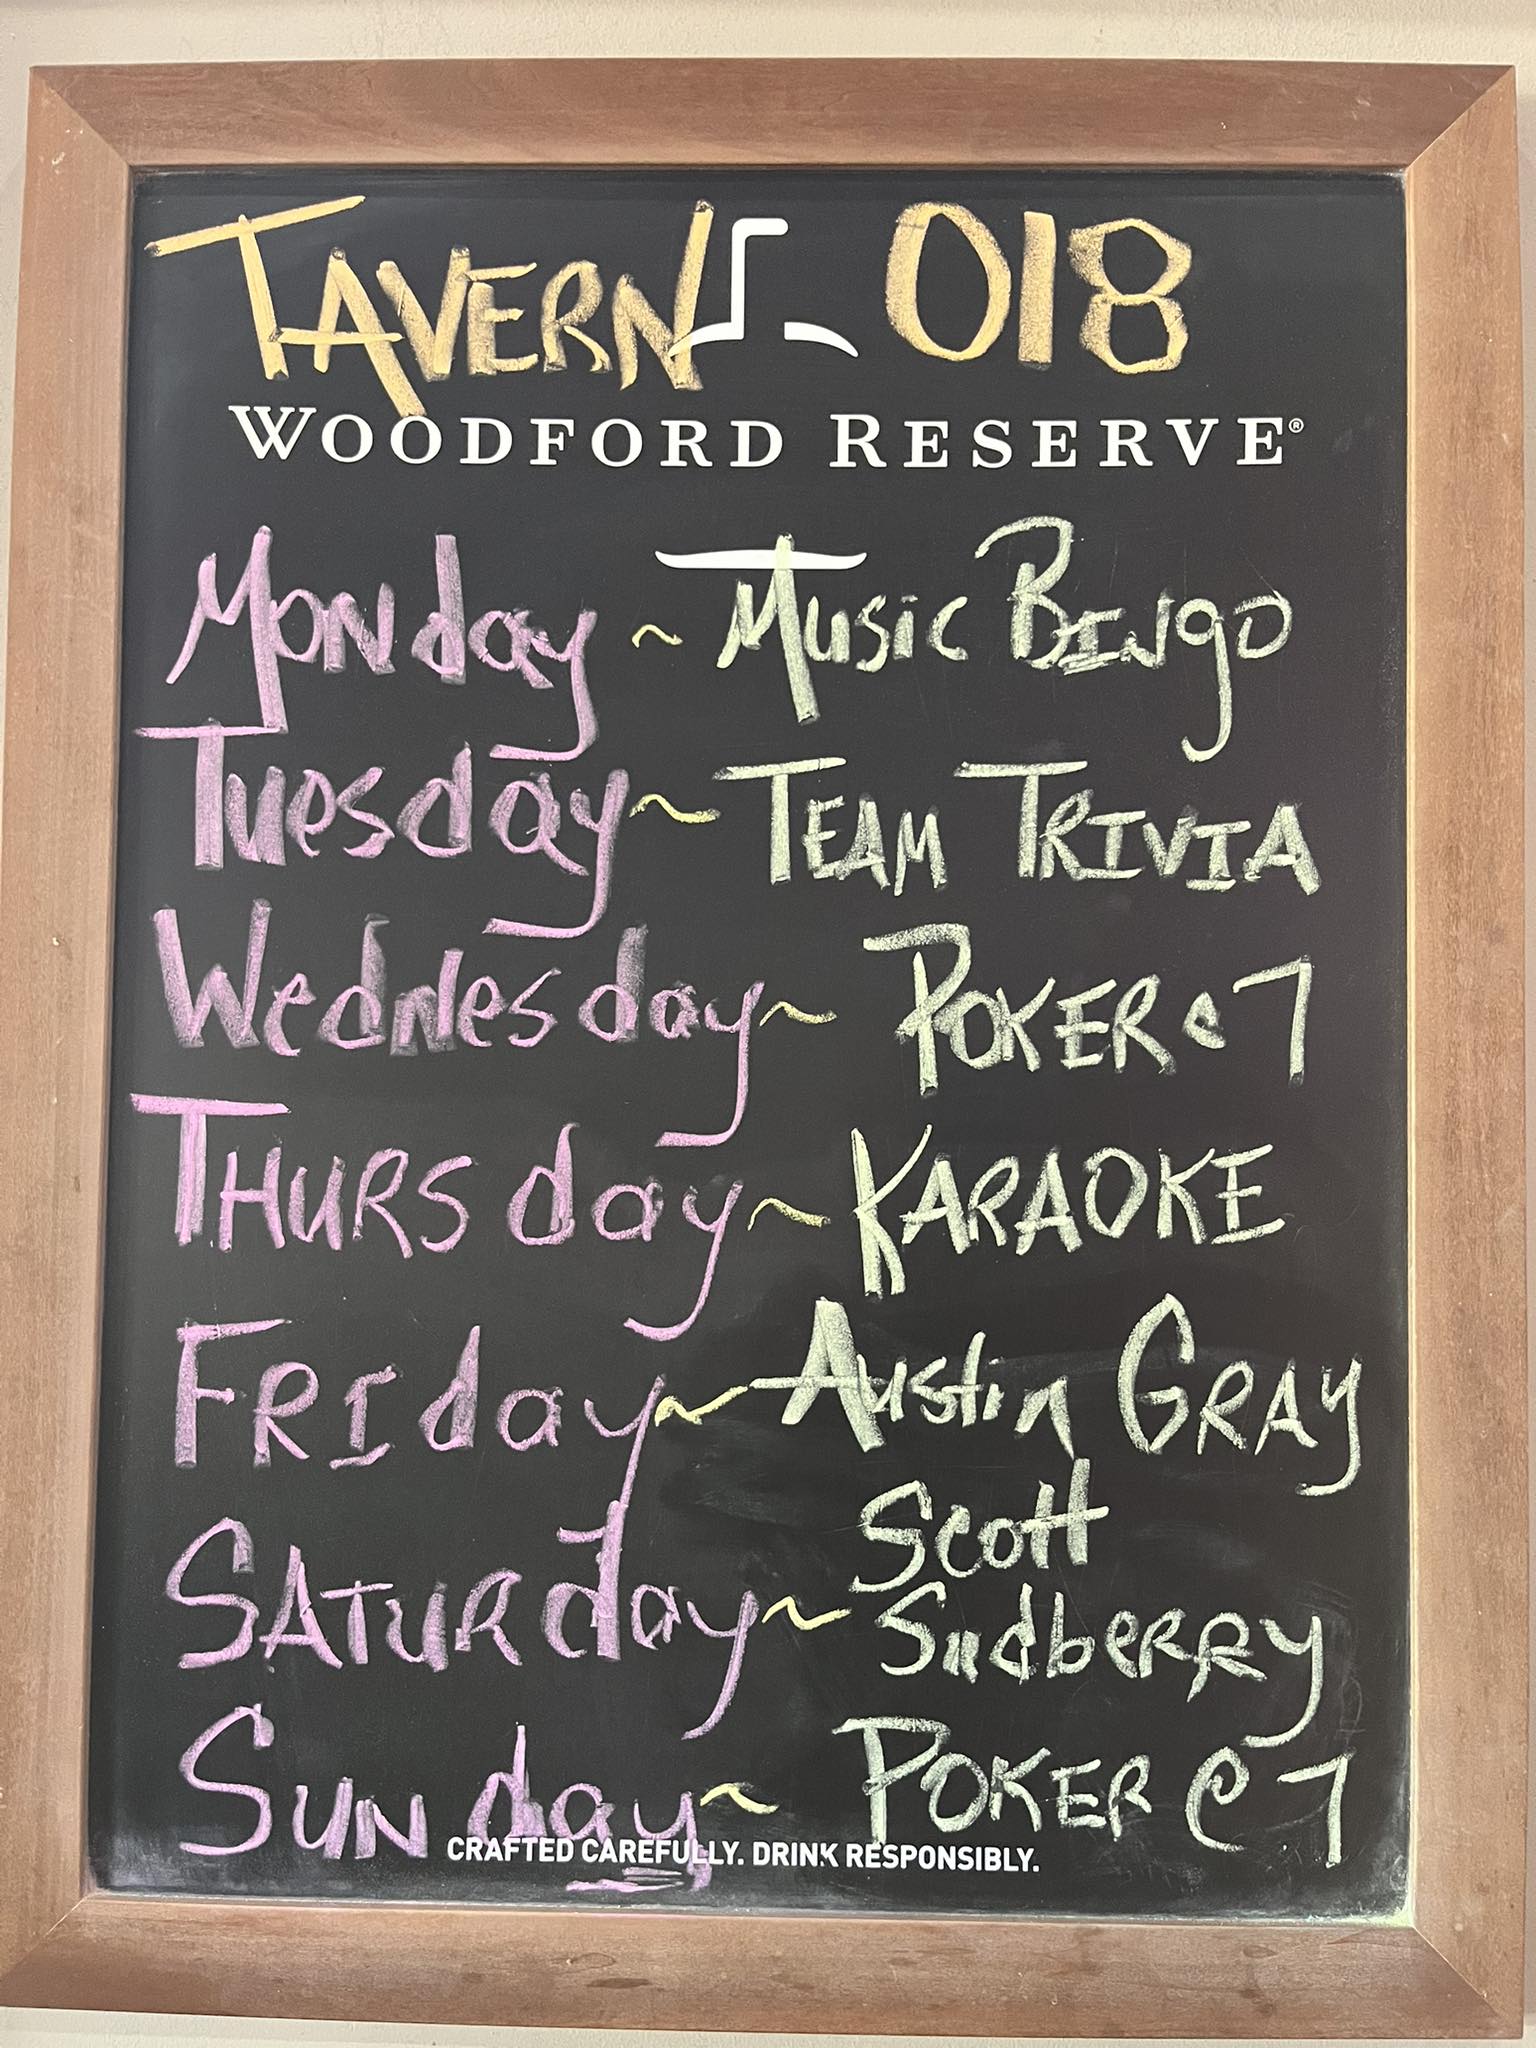 TAVERN 018
WOODFORD RESERVE®
Monday ~ Music Bingo
Tuesday ~ TEAM TRIVIA
Wednesday ~ POKER @ 7
THURSday ~ KARAOKE
FRIday ~ Austin GRAY
SATURday ~ Scott Sudberry
SUNday ~ POKER @ 7
CRAFTED CAREFULLY. DRINK RESPONSIBLY.